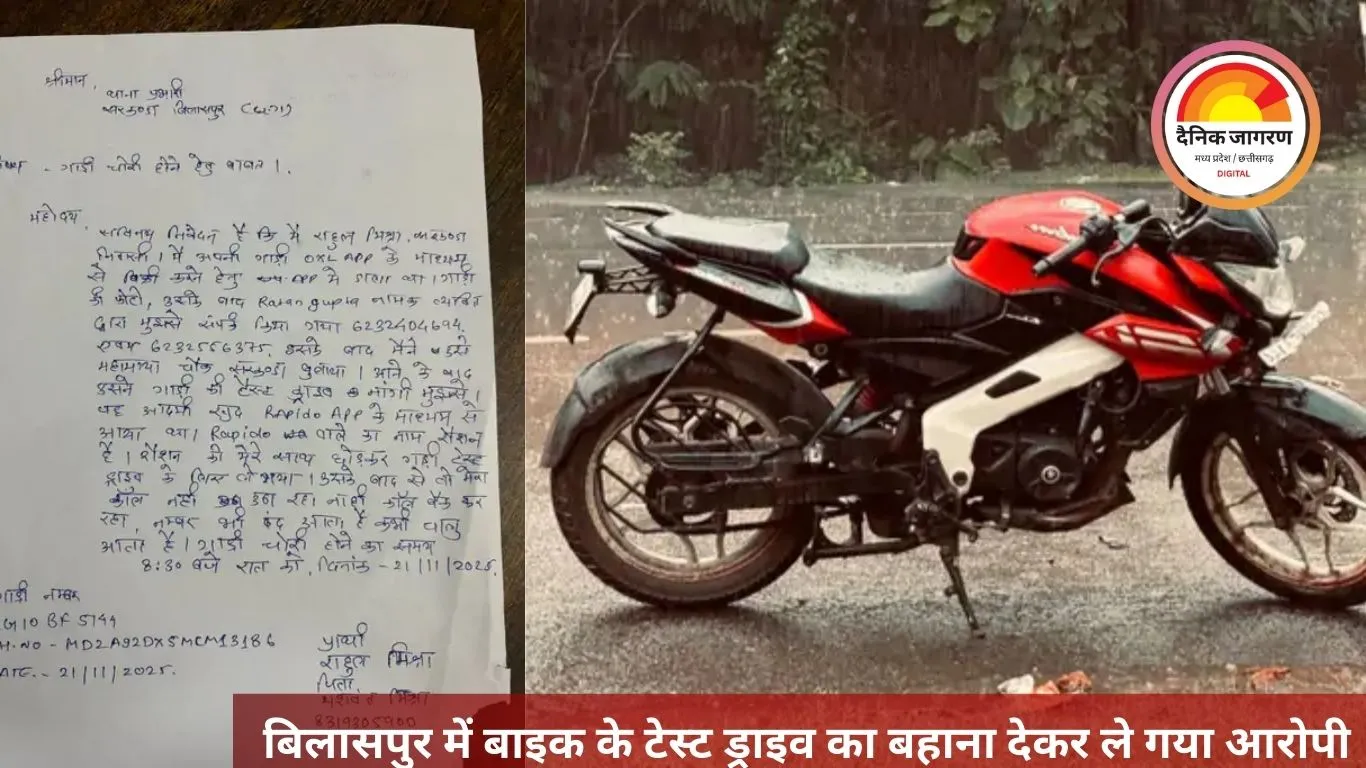 श्रीमान,
थाना प्रभारी
सरकण्डा बिलासपुर (छ.ग)
- गाडी चोरी होने हेतु बाबत ।
महोदय,
सविनय निवेदन है कि मैं राहुल मिश्रा, सरकण्डा
निवासी । मैं अपनी गाडी OXL APP के माध्यम
से बिक्री करने हेतु APP मे डाला था । गाडी
की फोटो, उसके बाद Ratan gupta नामक व्यक्ति
द्वारा मुझसे संपर्क किया गया 6232404694,
एवम 6232556375, उसके बाद मैने उसे
महामाया चौक सरकण्डा बुलाया । आने के बाद
उसने गाडी की टेस्ट ड्राइव मांगी मुझसे ।
वह आदमी खुद Rapido App के माध्यम से
आया था । Rapido वाले का नाम रौशन
है । रौशन को मेरे साथ छोडकर गाडी टेस्ट
ड्राइव के लिए ले गया । उसके बाद से वो मेरा
कॉल नही उठा रहा नाही कॉल बैक कर
रहा, नम्बर भी बंद आता है कभी चालु
आता है । गाडी चोरी होने का समय
8:30 बजे रात को, दिनांक - 21/11/2025.
गाडी नम्बर
CG10 BF 5144
CH.NO - MD2A92DX5MCM13186
DATE. - 21/11/2025.
प्रार्थी
राहुल मिश्रा
पिता
मिश्रा
8319305900
दैनिक जागरण
मध्य प्रदेश / छत्तीसगढ़
DIGITAL
बिलासपुर में बाइक के टेस्ट ड्राइव का बहाना देकर ले गया आरोपी